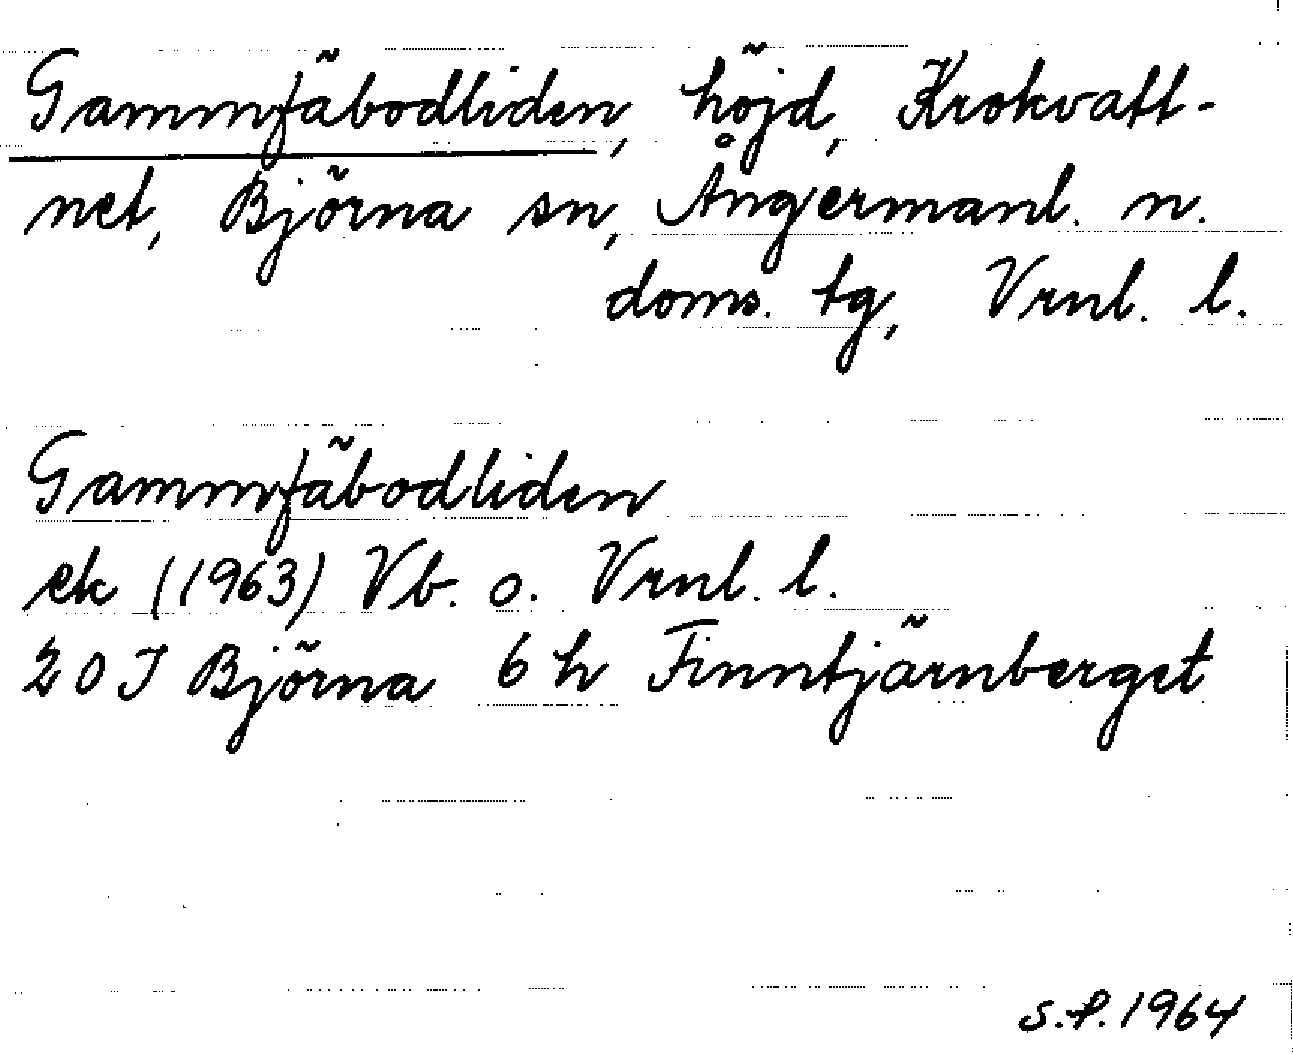 Gammfäbodliden, höjd, Krokvatt-
net, Björna sn, Ångermanl. n.
doms. tg, Vrnl. l.
Gammfäbodliden
ek (1963) Vb. o. Vrnl. l.
20 J Björna 6 h Finntjärnberget
S.P. 1964